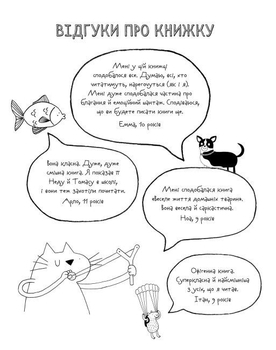 ВІДГУКИ ПРО КНИЖКУ
Мені у цій книжці
сподобалося все. Думаю, всі, хто
читатимуть, нарегочуться (як і я).
Мені дуже сподобалася частина про
благання й емоційний шантаж. Сподіваюся,
що ви будете писати книги ще.
Емма, 10 років
Вона класна. Дуже, дуже
дуже смішна книга. Я показав її
Неду й Томасу в школі,
і вони теж захотіли почитати.
Арло, 11 років
Мені сподобалася книга
«Веселе життя домашніх тварин».
Вона весела й саркастична.
Ноа, 9 років
Офігенна книга.
Суперкласна й найсмішніша
з усіх, що я читав.
Ітан, 9 років